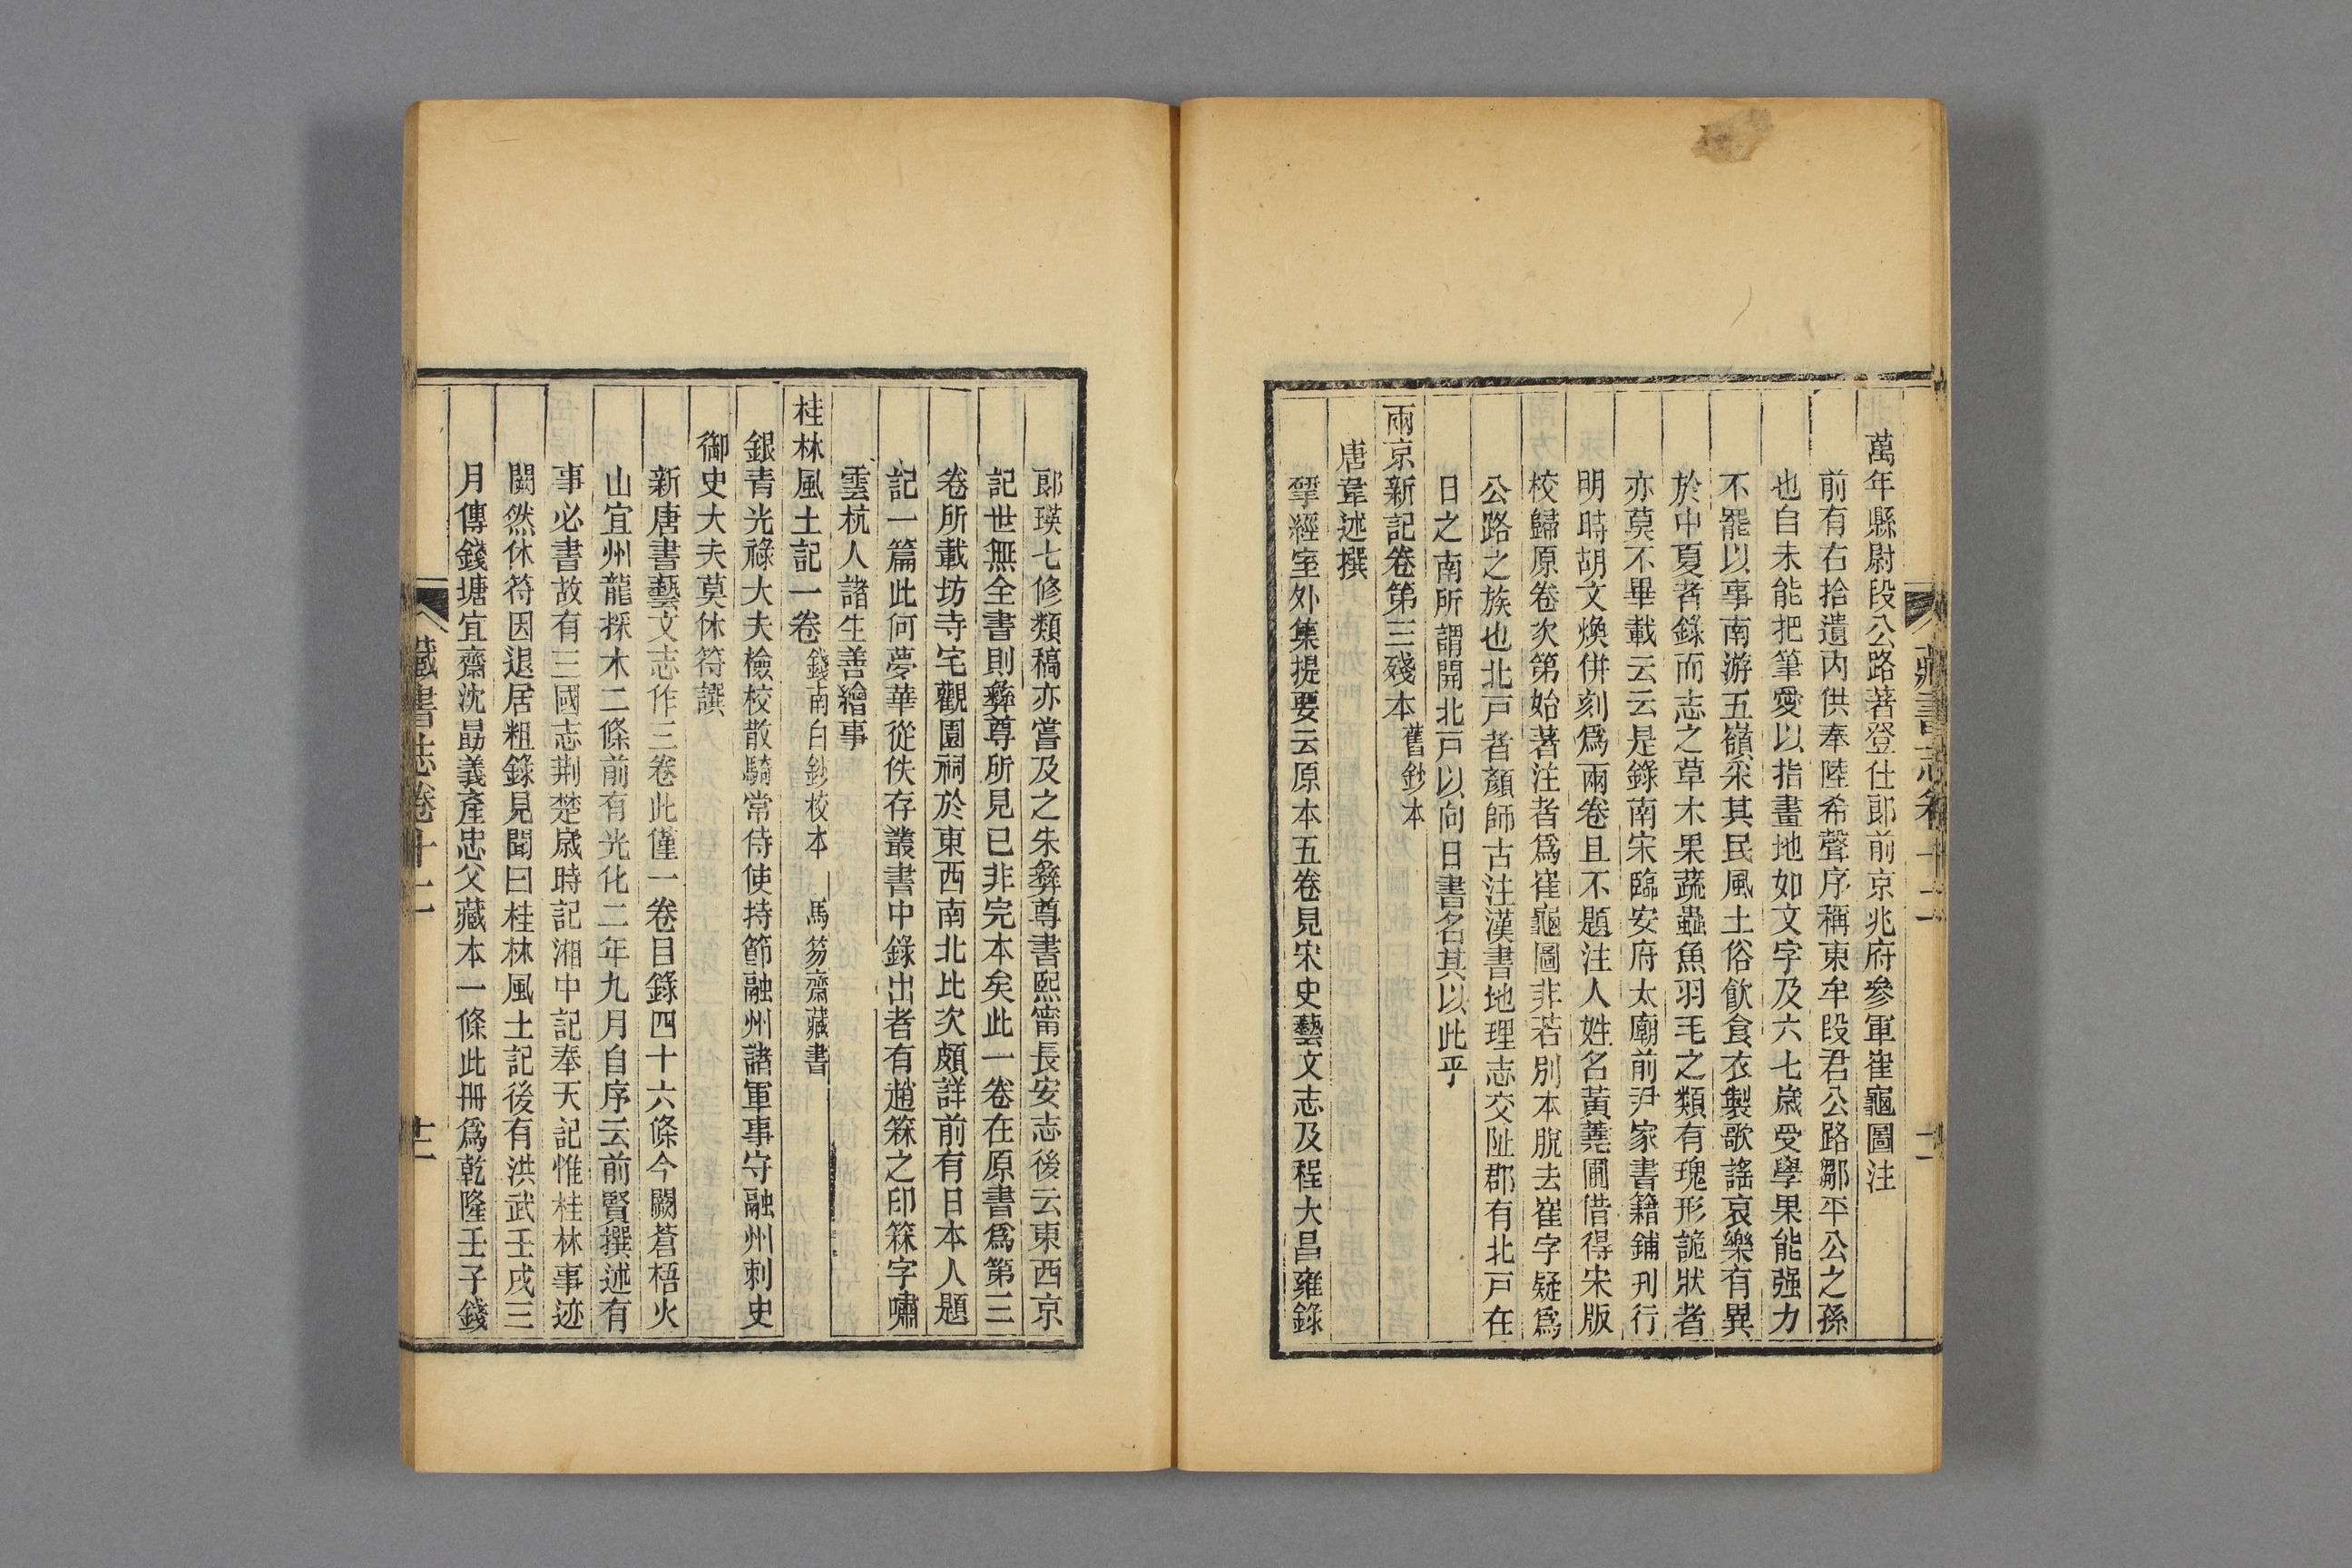 萬年縣尉段公路著登仕郎前京兆府參軍崔龜圖注
前有右拾遺內供奉陸希聲序稱東牟段君公路鄒平公之孫
也自未能把筆愛以指畫地如文字及六七歲受學果能强力
不罷以事南游五嶺采其民風土俗飲食衣製歌謠哀樂有異
於中夏者錄而志之草木果蔬蟲魚羽毛之類有瑰形詭狀者
亦莫不畢載云云是錄南宋臨安府太廟前尹家書籍鋪刊行
明時胡文煥併刻爲兩卷且不題注人姓名黃蕘圃借得宋版
校歸原卷次第始著注者爲崔龜圖非若別本脫去崔字疑爲
公路之族也北戸者顏師古注漢書地理志交阯郡有北戸在
日之南所謂開北戸以向日書名其以此乎
兩京新記卷第三殘本 舊鈔本
唐韋述撰
揅經室外集提要云原本五卷見宋史藝文志及程大昌雍錄
藏書志卷十二 十二
郞瑛七修類稿亦嘗及之朱彝尊書熙甯長安志後云東西京
記世無全書則彝尊所見已非完本矣此一卷在原書爲第三
卷所載坊寺宅觀園祠於東西南北比次頗詳前有日本人題
記一篇此何夢華從佚存叢書中錄出者有趙䆃之印䆃字嘯
雲杭人諸生善繪事
桂林風土記一卷 錢南白鈔校本 馬笏齋藏書
銀青光祿大夫檢校散騎常侍使持節融州諸軍事守融州刺史
御史大夫莫休符譔
新唐書藝文志作三卷此僅一卷目錄四十六條今闕蒼梧火
山宜州龍採木二條前有光化二年九月自序云前賢撰述有
事必書故有三國志荆楚歲時記湘中記奉天記惟桂林事迹
闃然休符因退居粗錄見聞曰桂林風土記後有洪武壬戌三
月傳錢塘宜齋沈勗義產忠父藏本一條此冊爲乾隆壬子錢
藏書志卷十二 十二